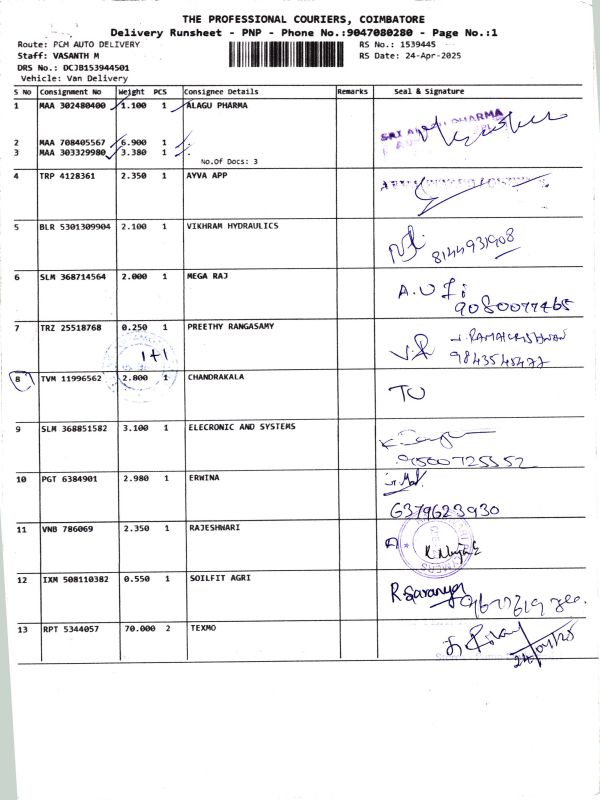 THE PROFESSIONAL COURIERS, COIMBATORE
Delivery Runsheet - PNP - Phone No.:9047080280 - Page No.:1
Route: PCM AUTO DELIVERY RS No.: 1539445
Staff: VASANTH M RS Date: 24-Apr-2025
DRS No.: DCJB153944501
Vehicle: Van Delivery
S No Consignment No Weight PCS Consignee Details Remarks Seal & Signature
1 MAA 302480400 1.100 1 ALAGU PHARMA
2 MAA 708405567 6.900 1
3 MAA 303329980 3.380 1
No.Of Docs: 3
4 TRP 4128361 2.350 1 AYVA APP
5 BLR 5301309904 2.100 1 VIKHRAM HYDRAULICS
8144931908
6 SLM 368714564 2.000 1 MEGA RAJ
9080077465
7 TRZ 25518768 0.250 1 PREETHY RANGASAMY
1+1
8 TVM 11996562 2.800 1 CHANDRAKALA
9 SLM 368851582 3.100 1 ELECRONIC AND SYSTEMS
9500725552
10 PGT 6384901 2.980 1 ERWINA
6379623930
11 VNB 786069 2.350 1 RAJESHWARI
12 IXM 508110382 0.550 1 SOILFIT AGRI
R Saranya
13 RPT 5344057 70.000 2 TEXMO
24/04/25